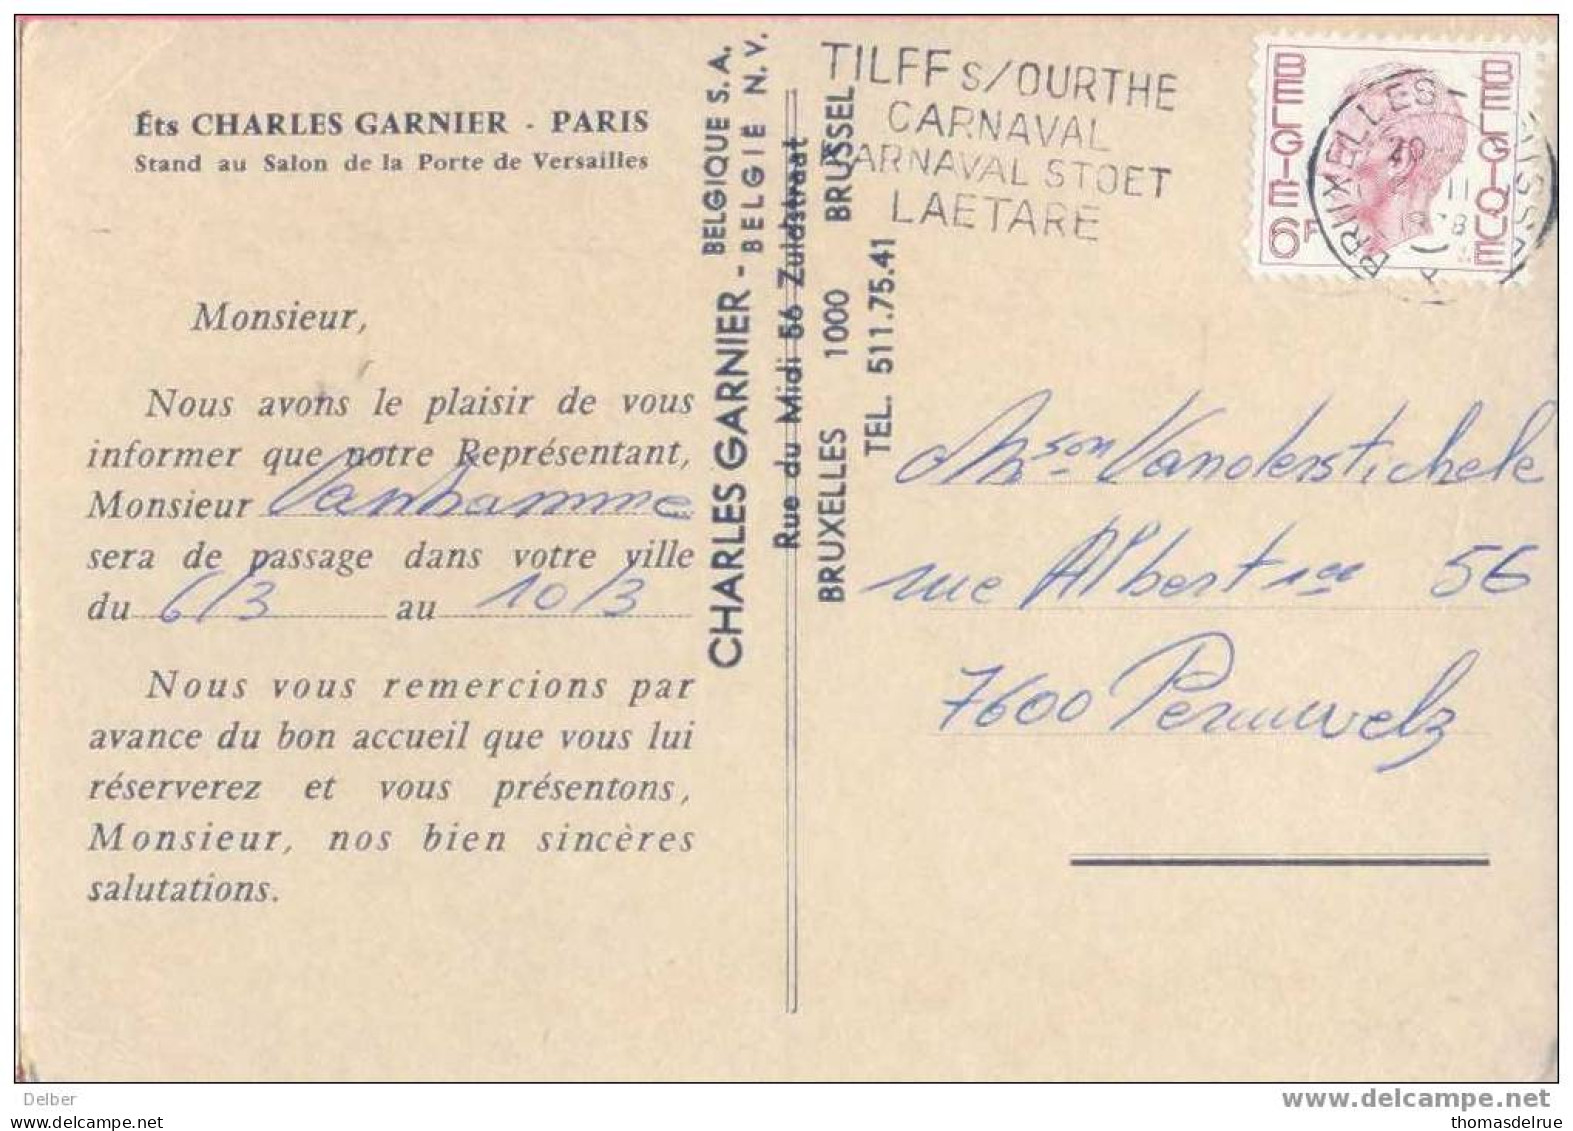 Éts CHARLES GARNIER - PARIS
Stand au Salon de la Porte de Versailles
Monsieur,
Nous avons le plaisir de vous
informer que notre Représentant,
Monsieur Vanhamme
sera de passage dans votre ville
du 6/3 au 10/3
Nous vous remercions par
avance du bon accueil que vous lui
réserverez et vous présentons,
Monsieur, nos bien sincères
salutations.
CHARLES GARNIER - BELGIQUE S.A.
BELGIË N.V.
Rue du Midi 56 Zuidstraat
BRUXELLES 1000 BRUSSEL
TEL. 511.75.41
TILFF S/OURTHE
CARNAVAL
CARNAVAL STOET
LAETARE
BELGIE 6F BELGIQUE
BRUXELLES
20
II
1978
Mson Vanderstichele
rue Albert 1er 56
7600 Peruwelz
Delber
www.delcampe.net
thomasdelrue